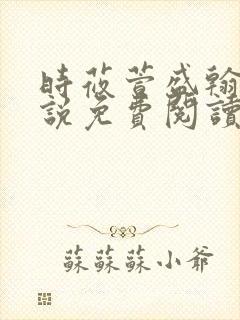 時莜萱盛翰
說免費閱讀
蘇蘇蘇小爺